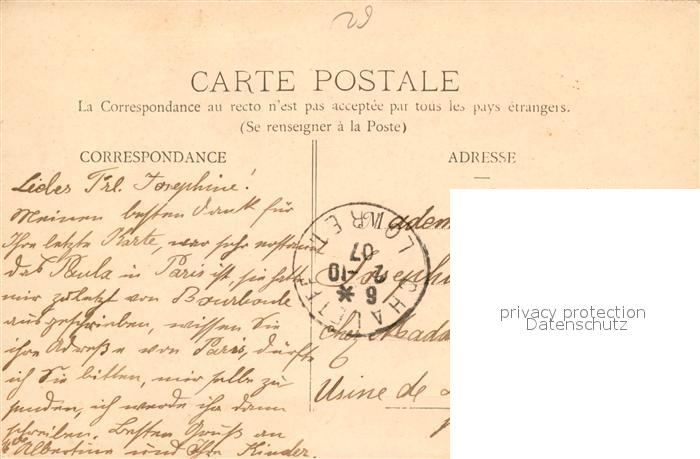 CARTE POSTALE
La Correspondance au recto n'est pas acceptée par tous les pays étrangers.
(Se renseigner à la Poste)
CORRESPONDANCE
Liebes Frl. Josephine!
Meinen besten Dank für
Ihre letzte Karte, war sehr erstaunt
das Paula in Paris ist, sie hatte
mir zuletzt von Bourboule
ausgeschrieben, wissen Sie
ihre Adreße von Paris, dürfte
ich Sie bitten, mir selbe zu
senden, ich werde ihr dann
schreiben. Besten Gruß an
Albertine und Ihre Kinder.
ADRESSE
adem
Joseph
chez Madam
6
Usine de
CHALETTE
LOIRET
6 *
2 -10
07
privacy protection
Datenschutz